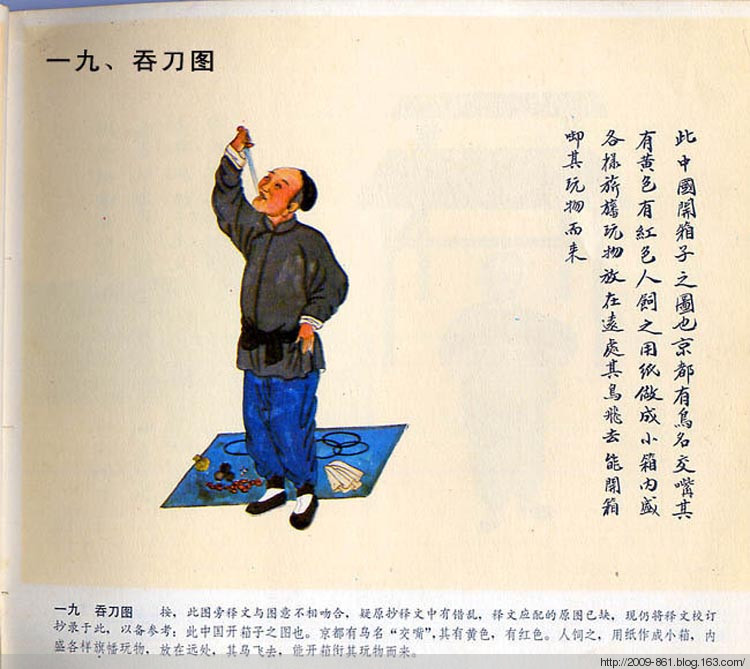 一九、吞刀图
此中國開箱子之圖也京都有鳥名交嘴其
有黄色有紅色人飼之用纸做成小箱内盛
各樣旂旛玩物放在遠處其鳥飛去能開箱
啣其玩物而来
一九　吞刀图　按，此图旁释文与图意不相吻合，疑原抄释文中有错乱，释文应配的原图已缺，现仍将释文校订
抄录于此，以备参考：此中国开箱子之图也。京都有鸟名“交嘴”，其有黄色，有红色。人饲之，用纸作成小箱，内
盛各样旗幡玩物，放在远处，其鸟飞去，能开箱衔其玩物而来。
http://2009-861.blog.163.com/